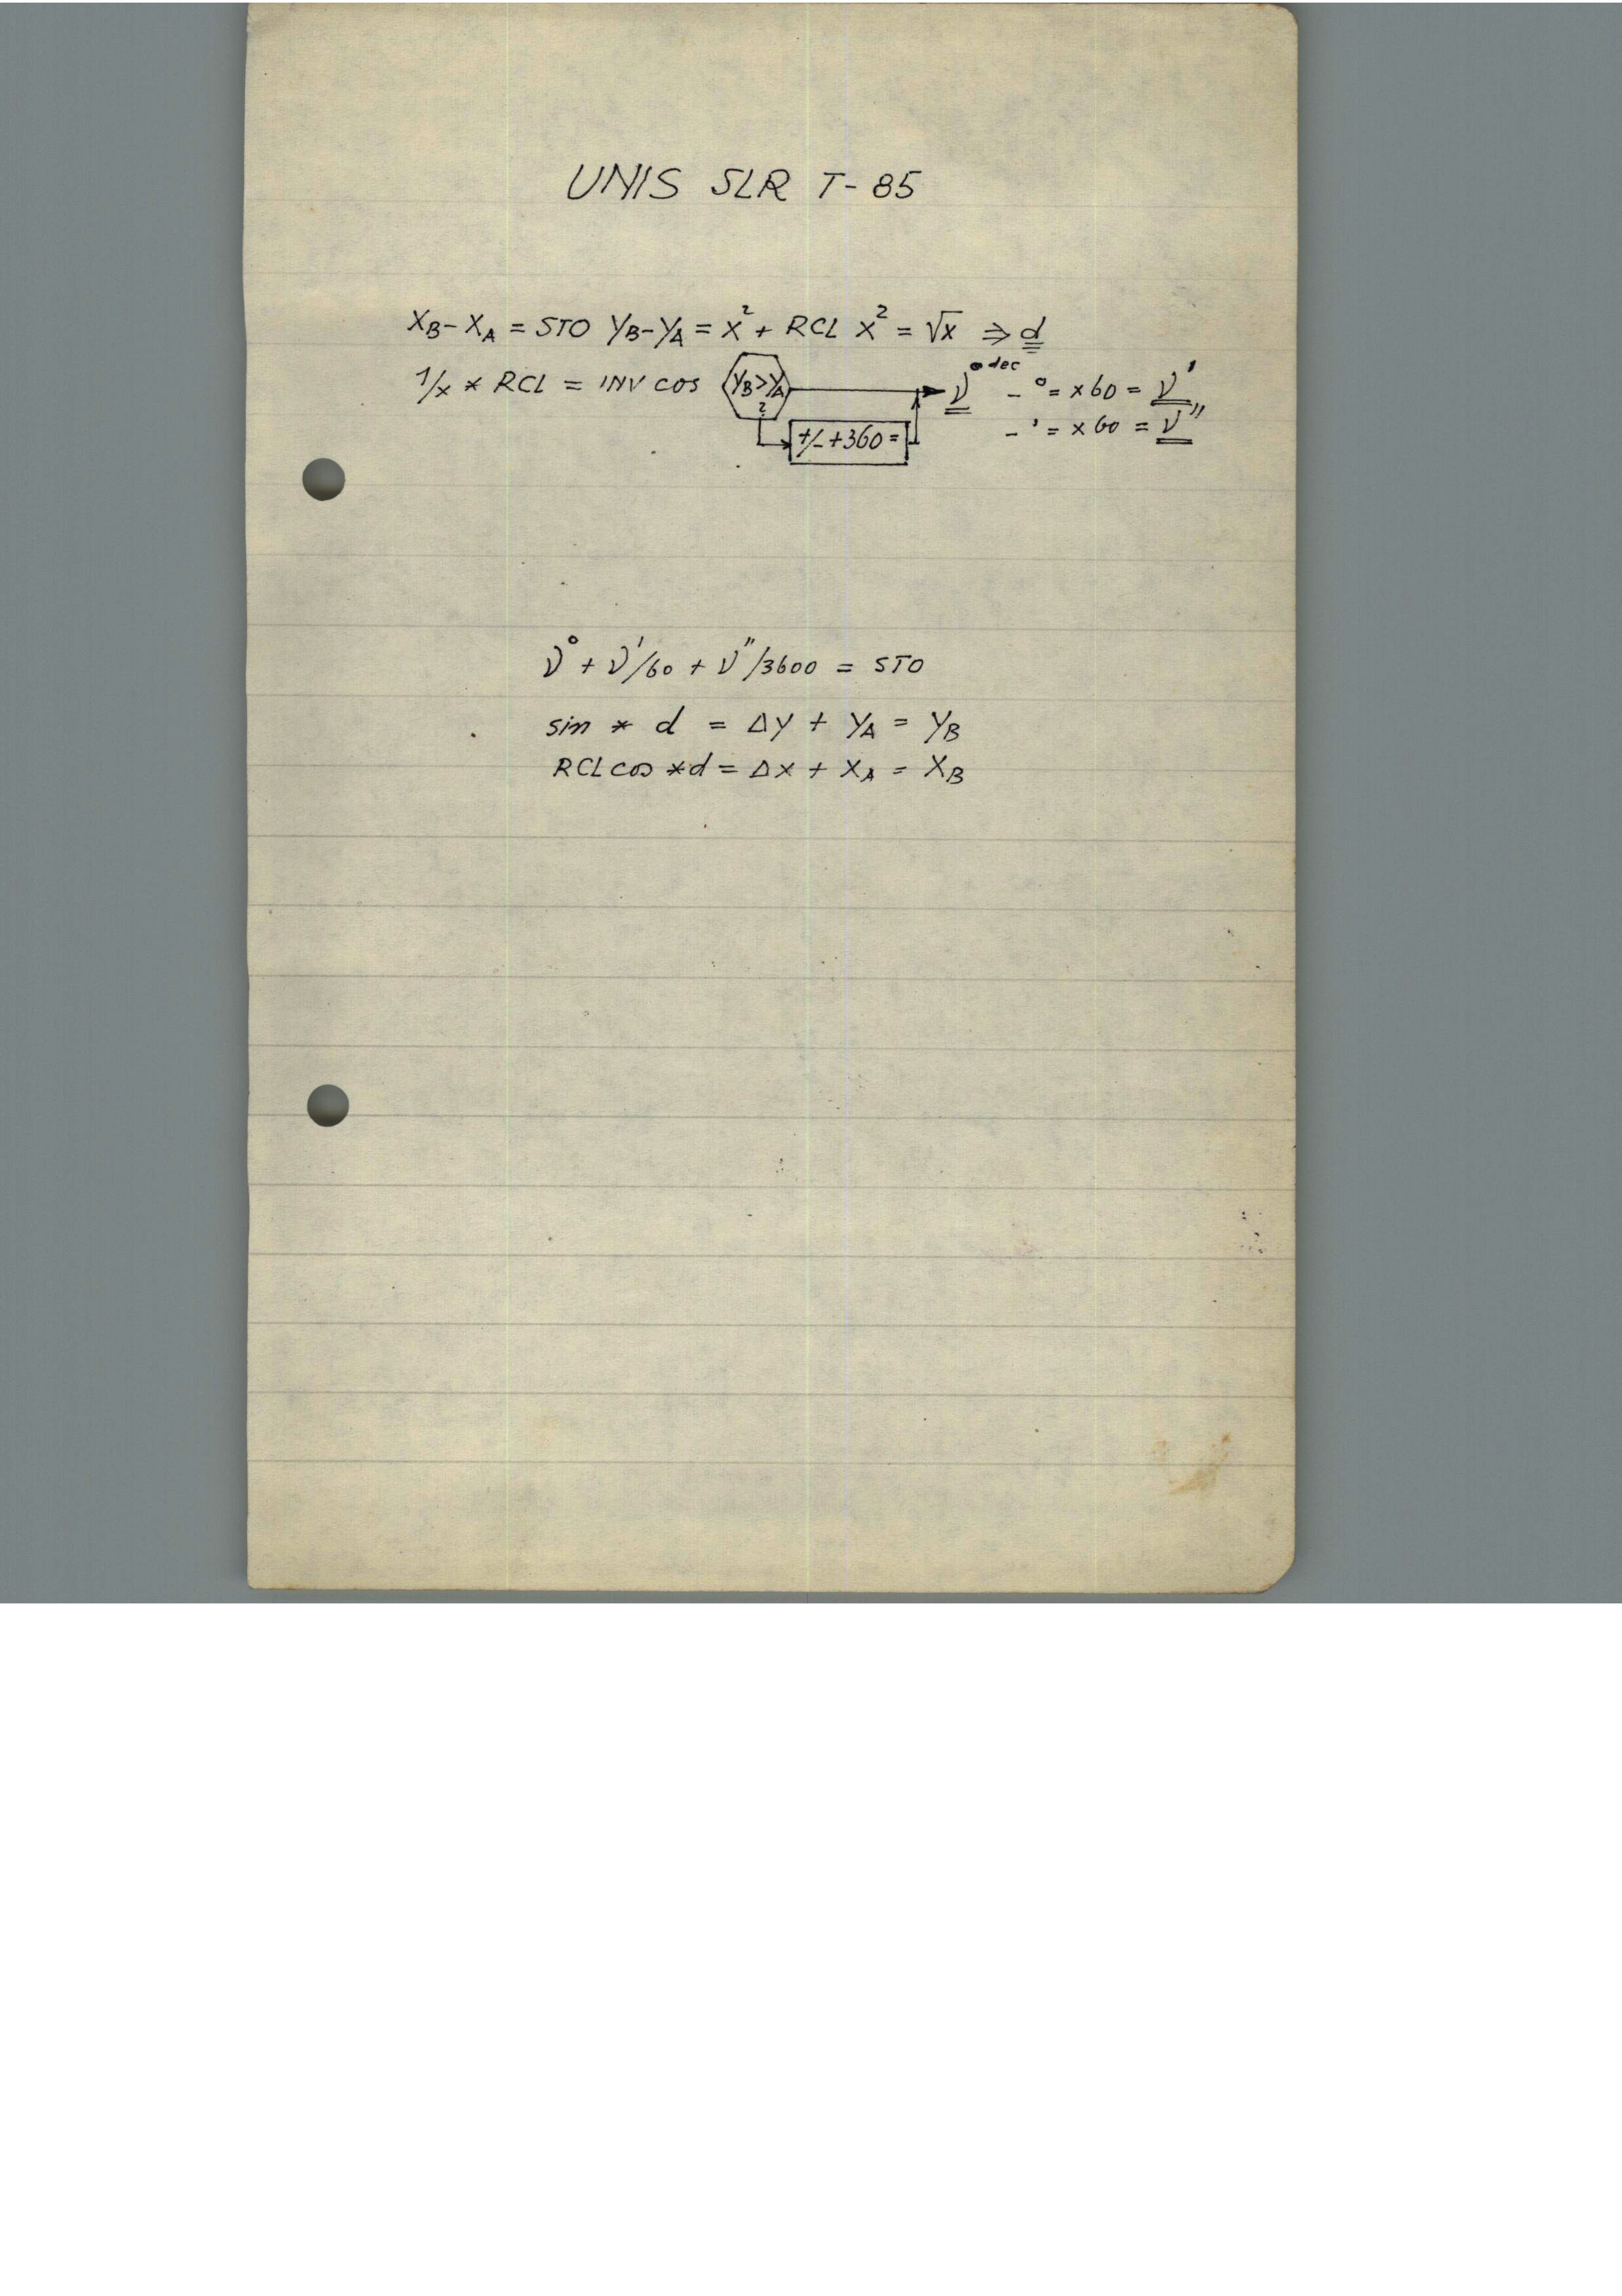 UNIS SLR T-85
X_B - X_A = STO Y_B - Y_A = x² + RCL x² = √x ⇒ d
1/x * RCL = INV cos Y_B > Y_A ? ν° dec - ° = x 60 = ν'
+/- + 360 = - ' = x 60 = ν"
ν° + ν'/60 + ν"/3600 = STO
sin * d = Δy + Y_A = Y_B
RCL cos * d = Δx + X_A = X_B